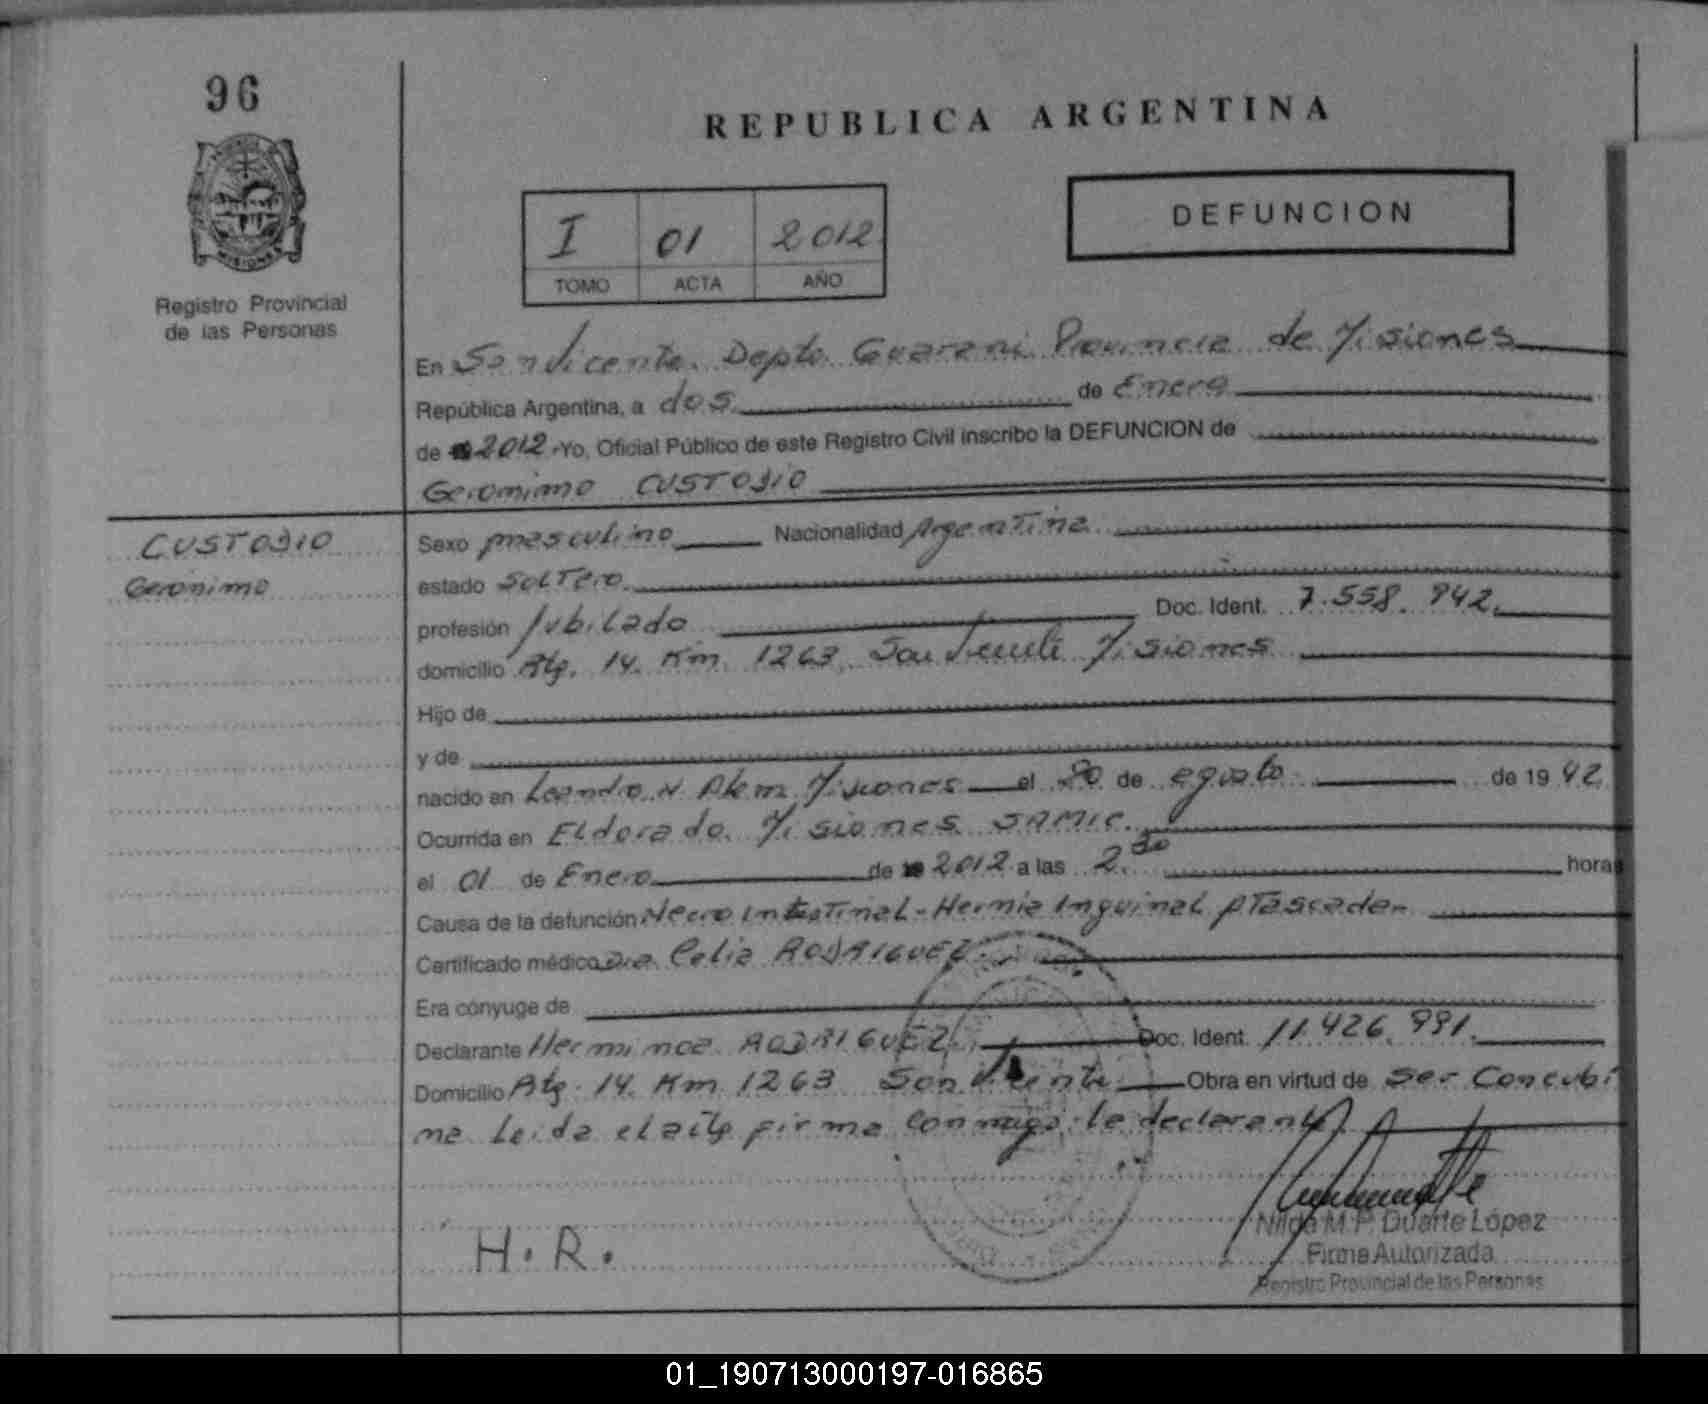 96
REPUBLICA ARGENTINA
MISIONES
Registro Provincial
de las Personas
I 01 2012
TOMO ACTA AÑO
DEFUNCION
En San Vicente. Depto Guarani Provincia de Misiones
República Argentina, a dos de Enero
de 2012 Yo, Oficial Público de este Registro Civil inscribo la DEFUNCION de
Geronimo CUSTODIO
CUSTODIO
Geronimo
Sexo masculino Nacionalidad Argentina
estado Soltero
profesión Jubilado Doc. Ident. 7.558.942.
domicilio Rtg. 14. Km. 1263. San Vicente Misiones
Hijo de
y de
nacido en Leandro N Alem Misiones el de agosto de 19 42
Ocurrida en Eldorado. Misiones SAMIC.
el 01 de Enero de 2012 a las 2. horas
Causa de la defunción Necro intestinal - Hernia Inguinal Atascada-
Certificado médico Dra. Celia RODRIGUEZ
Era cónyuge de
Declarante Herminda RODRIGUEZ Doc. Ident. 11.426.991.
Domicilio Rtg. 14. Km 1263 San Vicente Obra en virtud de ser Concubi
na Leida el acta firma conmigo la declarante
H.R.
Nilda M.P. Duarte López
Firma Autorizada
Registro Provincial de las Personas
01_190713000197-016865